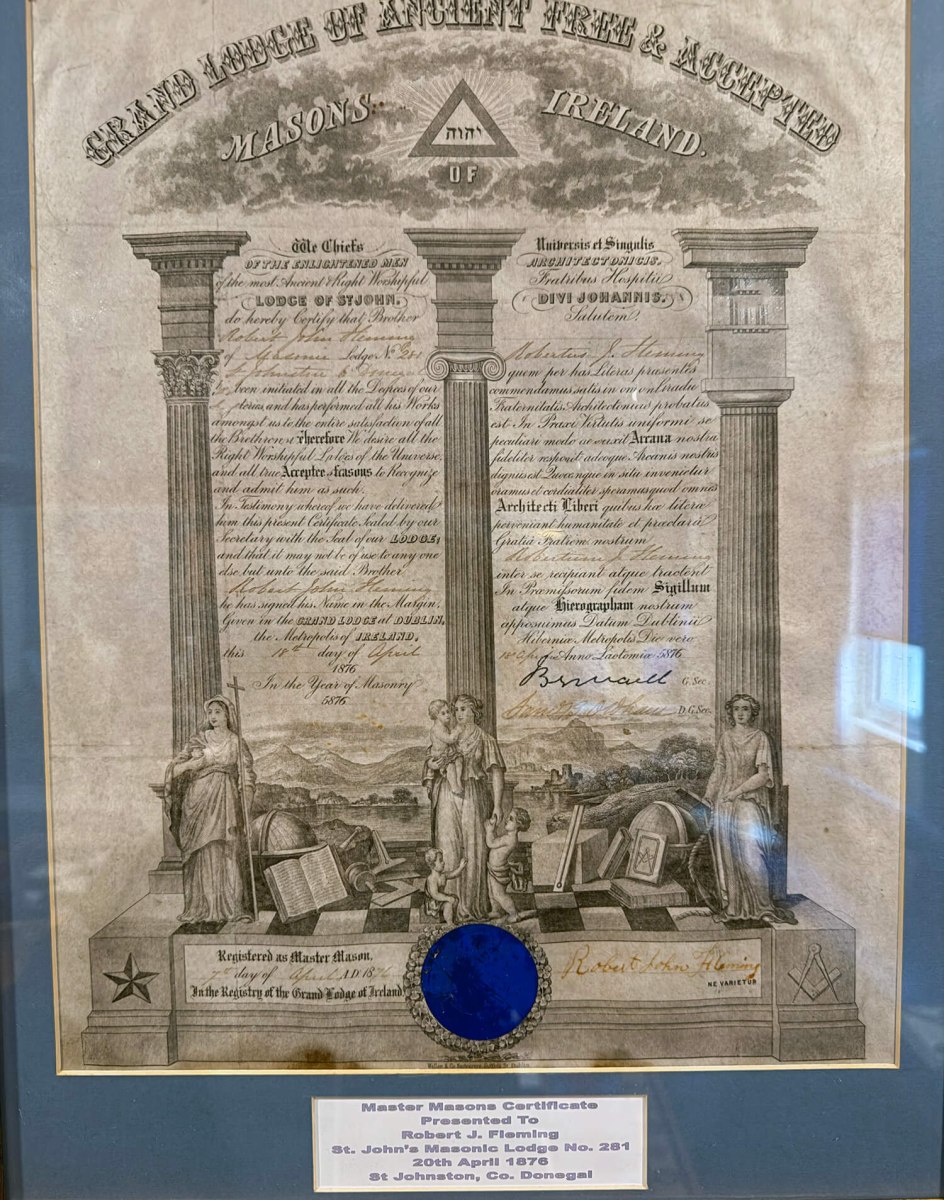 GRAND LODGE OF ANCIENT FREE & ACCEPTED
MASONS IRELAND.
יהוה
OF
We Chiefs
OF THE ENLIGHTENED MEN
of the most Ancient & Right Worshipful
LODGE OF ST JOHN,
do hereby Certify that Brother
Robert John Fleming
of Masonic Lodge No. 281
St Johnston Co
been initiated in all the Degrees of our
and has performed all his Works
amongst us to the entire satisfaction of all
the Brethren, Therefore We desire all the
Right Worshipful of the Universe,
and all true to Recognize
and admit him as such.
In Testimony whereof we have delivered
him this present Certificate Sealed by our
Secretary with the Seal of our LODGE;
and that it may not be of use to any one
else but unto the said Brother
Robert John Fleming
he has signed his Name in the Margin,
Given in the GRAND LODGE at DUBLIN,
the Metropolis of IRELAND,
this 18th day of April
1876
In the Year of Masonry
5876
Universis et Singulis
ARCHITECTONICIS.
Fratribus Hospitii
DIVI JOHANNIS.
Salutem.
Robertus J. Fleming
quem per has Literas præsentes
commendamus satis in omni Gradu
Fraternitatis Architectonicæ probatus
est In Praxi Virtutis uniformi se
peculiari modo Arcana nostra
fideliter adeoque Arcanis nostris
dignus est Quocunque in situ invenietur
oramus et cordialiter speramus quod omnes
Architecti Liberi quibus hæ literæ
perveniant humanitate et præclara
Gratia Fratrem nostrum
Robertum J. Fleming
inter se recipiant atque tractent
In Præmissorum fidem Sigillum
atque Hierographam nostrum
apposuimus Datum Dublinii
Hiberniæ Metropolis Die vero
18 April Anno Laotomiæ 5876
G. Sec.
D.G. Sec.
Registered as Master Mason,
7th day of April A.D. 1876
In the Registry of the Grand Lodge of Ireland,
Robert John Fleming
NE VARIETUR
G
Master Masons Certificate
Presented To
Robert J. Fleming
St. John's Masonic Lodge No. 281
20th April 1876
St Johnston, Co. Donegal